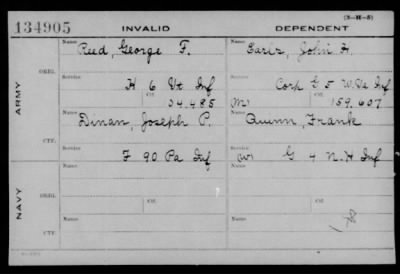 (3-H-5)
134905 INVALID DEPENDENT
Name Name
Reed, George F. Earls, John H.
ORIG.
Service Service
H 6 Vt Inf Corp G 5 W.Va Inf
Ctf. Ctf.
34.485 (M) 159.607
ARMY
Name Name
Dinan, Joseph P. Quinn, Frank
CTF.
Service Service
F 90 Pa Inf (W) G 4 N.H Inf
Name Name
ORIG.
Service Service
Ctf. Ctf.
NAVY
Name Name
CTF.